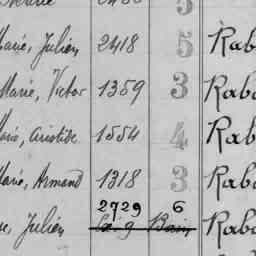 Marie, Julien 2418 5 Rab
Marie, Victor 1359 3 Rabo
Marie, Aristide 1554 4 Rab
Marie, Armand 1318 3 Rabo
2729 6
Julien Bain Rabo